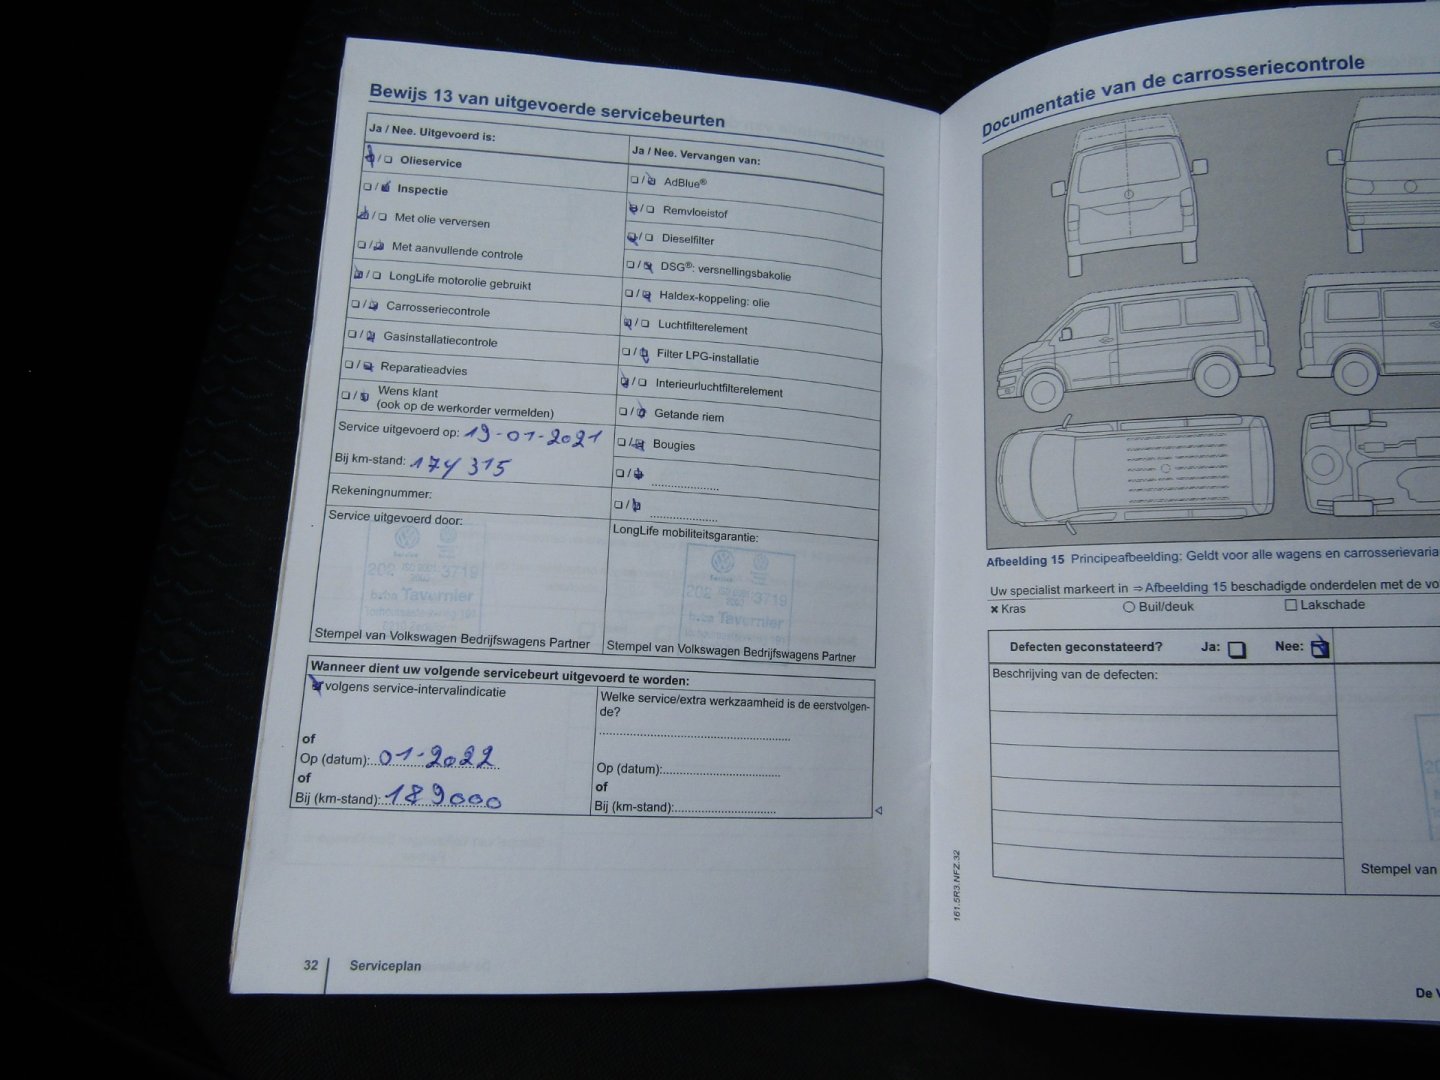 Bewijs 13 van uitgevoerde servicebeurten
Ja / Nee. Uitgevoerd is:
Olieservice
Inspectie
Met olie verversen
Met aanvullende controle
LongLife motorolie gebruikt
Carrosseriecontrole
Gasinstallatiecontrole
Reparatieadvies
Wens klant
(ook op de werkorder vermelden)
Service uitgevoerd op: 19-01-2021
Bij km-stand: 174 315
Rekeningnummer:
Service uitgevoerd door:
Service
202 ISO 9001 3719
bvba Tavernier
Stempel van Volkswagen Bedrijfswagens Partner
Ja / Nee. Vervangen van:
AdBlue®
Remvloeistof
Dieselfilter
DSG®: versnellingsbakolie
Haldex-koppeling: olie
Luchtfilterelement
Filter LPG-installatie
Interieurluchtfilterelement
Getande riem
Bougies
LongLife mobiliteitsgarantie:
Service
202 3719
bvba Tavernier
Stempel van Volkswagen Bedrijfswagens Partner
Wanneer dient uw volgende servicebeurt uitgevoerd te worden:
volgens service-intervalindicatie
of
Op (datum): 01-2022
of
Bij (km-stand): 189000
Welke service/extra werkzaamheid is de eerstvolgen-
de?
Op (datum):
of
Bij (km-stand):
32 Serviceplan
Documentatie van de carrosseriecontrole
Afbeelding 15 Principeafbeelding: Geldt voor alle wagens en carrosserievaria
Uw specialist markeert in ⇒ Afbeelding 15 beschadigde onderdelen met de vo
× Kras ○ Buil/deuk □ Lakschade
Defecten geconstateerd? Ja: Nee:
Beschrijving van de defecten:
Stempel van
161.5R3.NFZ.32
De V